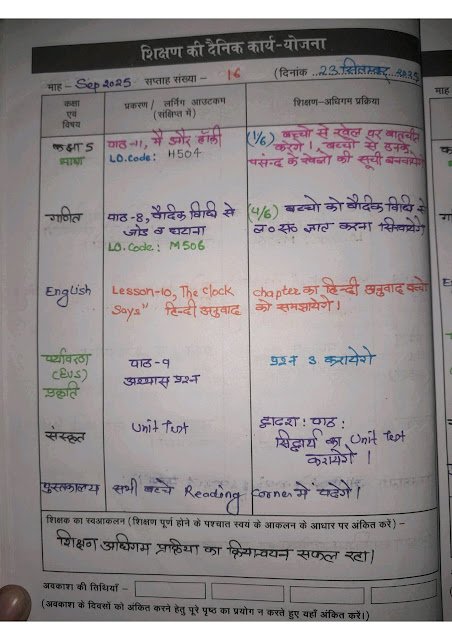 शिक्षण की दैनिक कार्य-योजना
माह - Sep 2025 सप्ताह संख्या - 16 (दिनांक ..23 सितम्बर, 2025
कक्षा एवं विषय
प्रकरण / लर्निंग आउटकम (संक्षिप्त में)
शिक्षण-अधिगम प्रक्रिया
कक्षा 5
भाषा
पाठ-11, मैं और हॉकी
LO.Code: H504
(1/6) बच्चों से खेल पर बातचीत
करेंगे। बच्चों से उनके
पसंद के खेलों की सूची बनवायेंगे
गणित
पाठ-8, वैदिक विधि से
जोड़ व घटाना
LO.Code: M506
(4/6) बच्चों को वैदिक विधि से
ल० स० ज्ञात करना सिखायेंगे
English
Lesson-10, The Clock
Says" हिन्दी अनुवाद
chapter का हिन्दी अनुवाद बच्चों
को समझायेंगे।
पर्यावरण
(EVS)
प्रकृति
पाठ-9
अभ्यास प्रश्न
प्रश्न 3 करायेंगे
संस्कृत
Unit Test
द्वादश: पाठ:
सिद्धार्थ का Unit Test
करायेंगे।
पुस्तकालय सभी बच्चे Reading Corner में पढ़ेंगे।
शिक्षक का स्वआकलन (शिक्षण पूर्ण होने के पश्चात स्वयं के आकलन के आधार पर अंकित करें) -
शिक्षण अधिगम प्रक्रिया का क्रियान्वयन सफल रहा।
अवकाश की तिथियाँ -
(अवकाश के दिवसों को अंकित करने हेतु पूरे पृष्ठ का प्रयोग न करते हुए यहाँ अंकित करें।)
माह